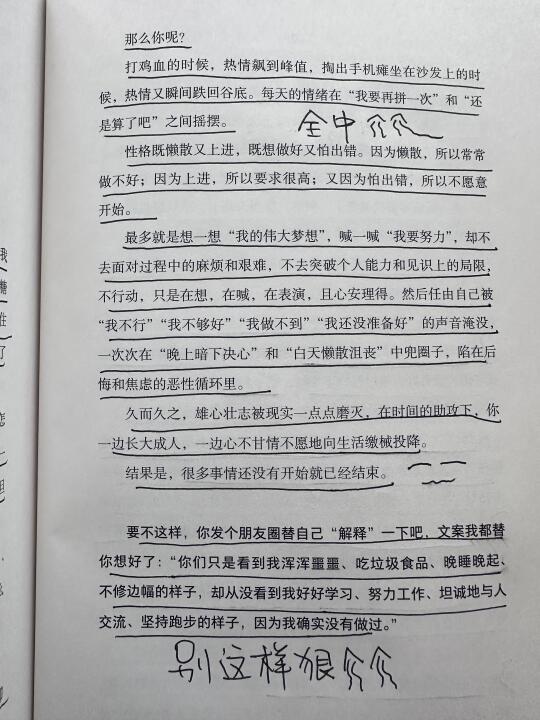 那么你呢？
打鸡血的时候，热情飙到峰值，掏出手机瘫坐在沙发上的时
候，热情又瞬间跌回谷底。每天的情绪在“我要再拼一次”和“还
是算了吧”之间摇摆。
全中
性格既懒散又上进，既想做好又怕出错。因为懒散，所以常常
做不好；因为上进，所以要求很高；又因为怕出错，所以不愿意
开始。
最多就是想一想“我的伟大梦想”，喊一喊“我要努力”，却不
去面对过程中的麻烦和艰难，不去突破个人能力和见识上的局限，
不行动，只是在想，在喊，在表演，且心安理得。然后任由自己被
“我不行”“我不够好”“我做不到”“我还没准备好”的声音淹没，
一次次在“晚上暗下决心”和“白天懒散沮丧”中兜圈子，陷在后
悔和焦虑的恶性循环里。
久而久之，雄心壮志被现实一点点磨灭，在时间的助攻下，你
一边长大成人，一边心不甘情不愿地向生活缴械投降。
结果是，很多事情还没有开始就已经结束。
要不这样，你发个朋友圈替自己“解释”一下吧，文案我都替
你想好了：“你们只是看到我浑浑噩噩、吃垃圾食品、晚睡晚起、
不修边幅的样子，却从没看到我好好学习、努力工作、坦诚地与人
交流、坚持跑步的样子，因为我确实没有做过。”
别这样狠